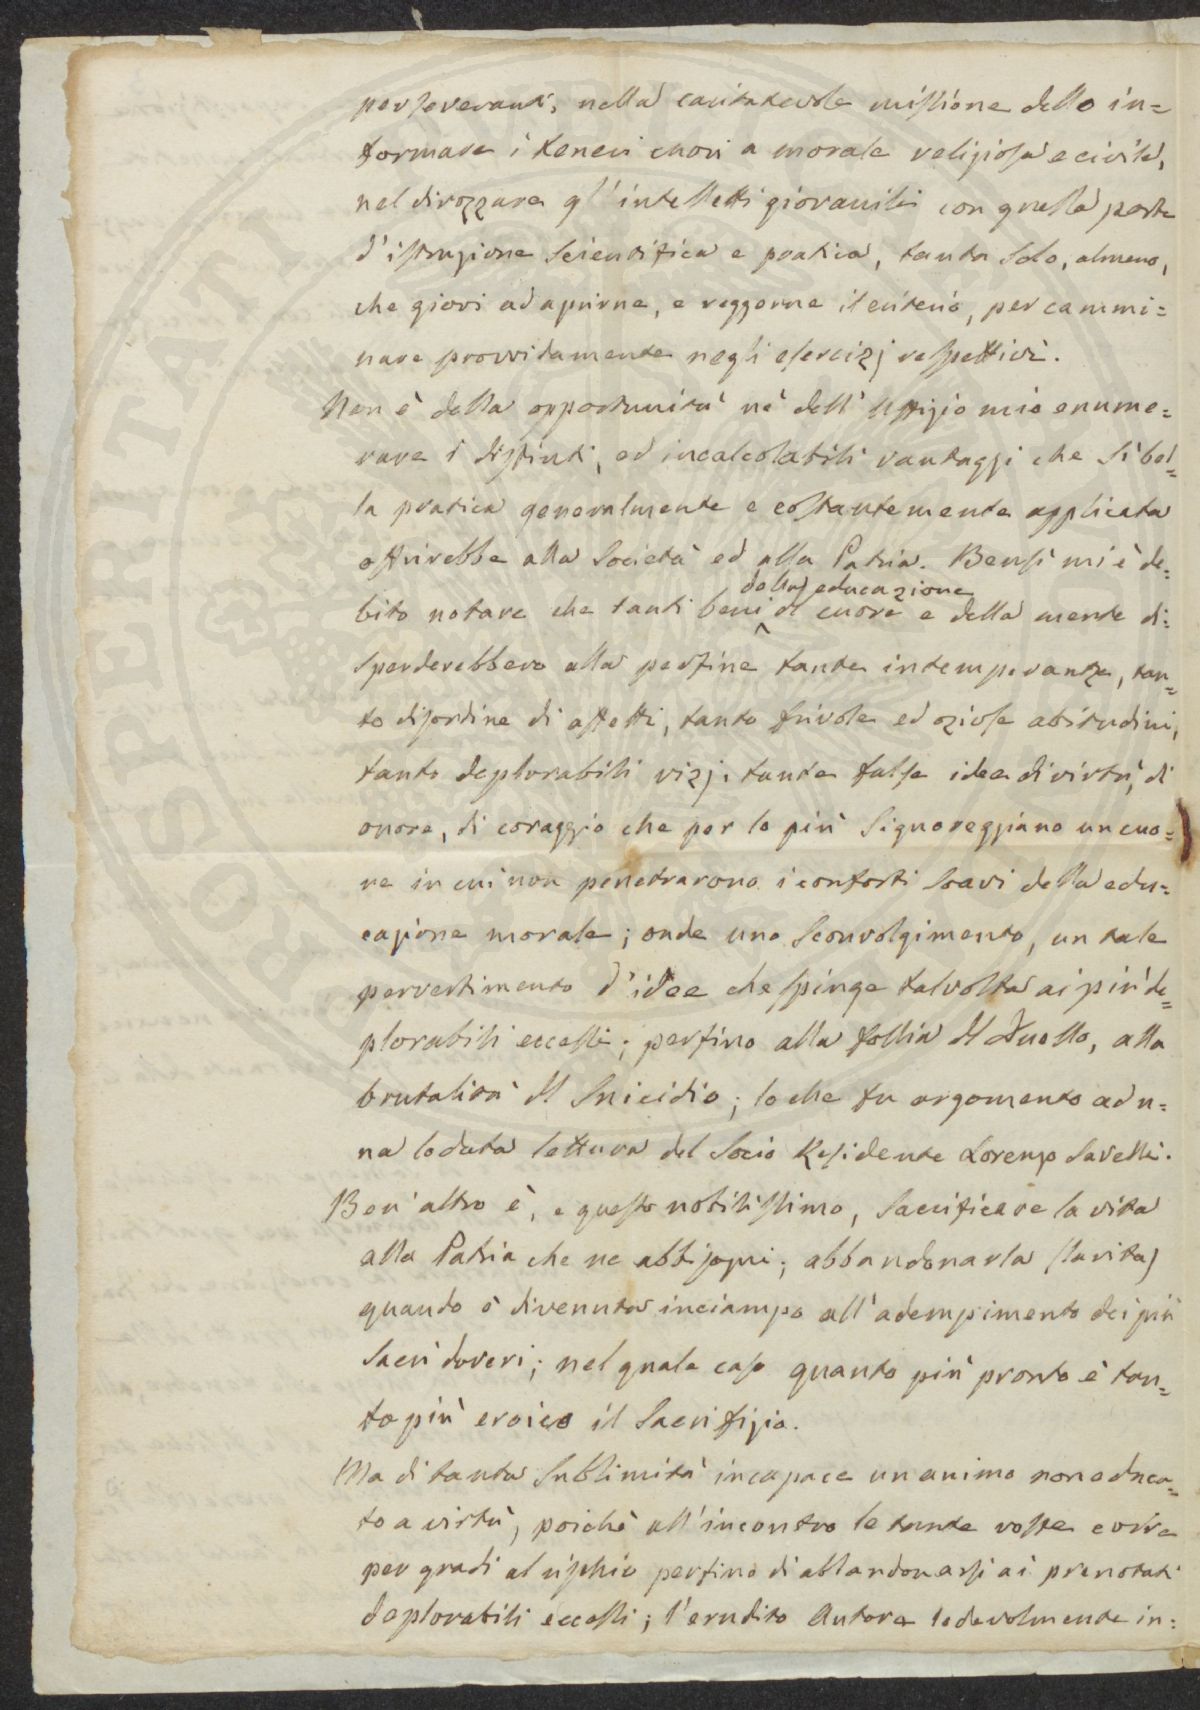 perseveranti, nella caritatevole missione dello in=
formare i teneri cuori a morale religiosa e civile,
nel dirozzare gl'intelletti giovanili con quella parte
d'istruzione scientifica e pratica, tanta solo, almeno,
che giovi ad aprirne, e reggerne il criterio, per cammi=
nare provvidamente negli esercizj respettivi.
Non è della opportunità nè dell'Uffizio mio enume=
rare i distinti, ed incalcolabili vantaggi che sì bel=
la pratica generalmente e costantemente applicata
offrirebbe alla Società ed alla Patria. Bensì mi è de=
della educazione
bito notare che tanti beni del cuore e della mente di=
sperderebbero alla perfine tante intemperanze, tan=
to disordine di affetti, tanto frivole ed oziose abitudini,
tanto deplorabili vizj, tante false idee di virtù, di
onore, di coraggio che per lo più signoreggiano un cuo=
re in cui non penetrarono i conforti soavi della edu=
cazione morale; onde uno sconvolgimento, un tale
pervertimento d'idee che spinge talvolta ai più de=
plorabili eccessi; perfino alla follia del Duello, alla
brutalità del Suicidio; lo che fu argomento ad u=
na lodata lettura del Socio Residente Lorenzo Savelli.
Ben'altro è, e questo nobilissimo, sacrificare la vita
alla Patria che ne abbisogni; abbandonarla (la vita)
quando è divenuta inciampo all'adempimento dei più
sacri doveri; nel quale caso quanto più pronto è tan=
to più eroico il sacrifizio.
Ma di tanta sublimità incapace un animo non educa=
to a virtù, poichè all'incontro le tante volte corre
per gradi al rischio perfino di abbandonarsi ai prenotati
deplorabili eccessi; l'erudito Autore lodevolmente in=
PROSPERITATI PUBLICAE